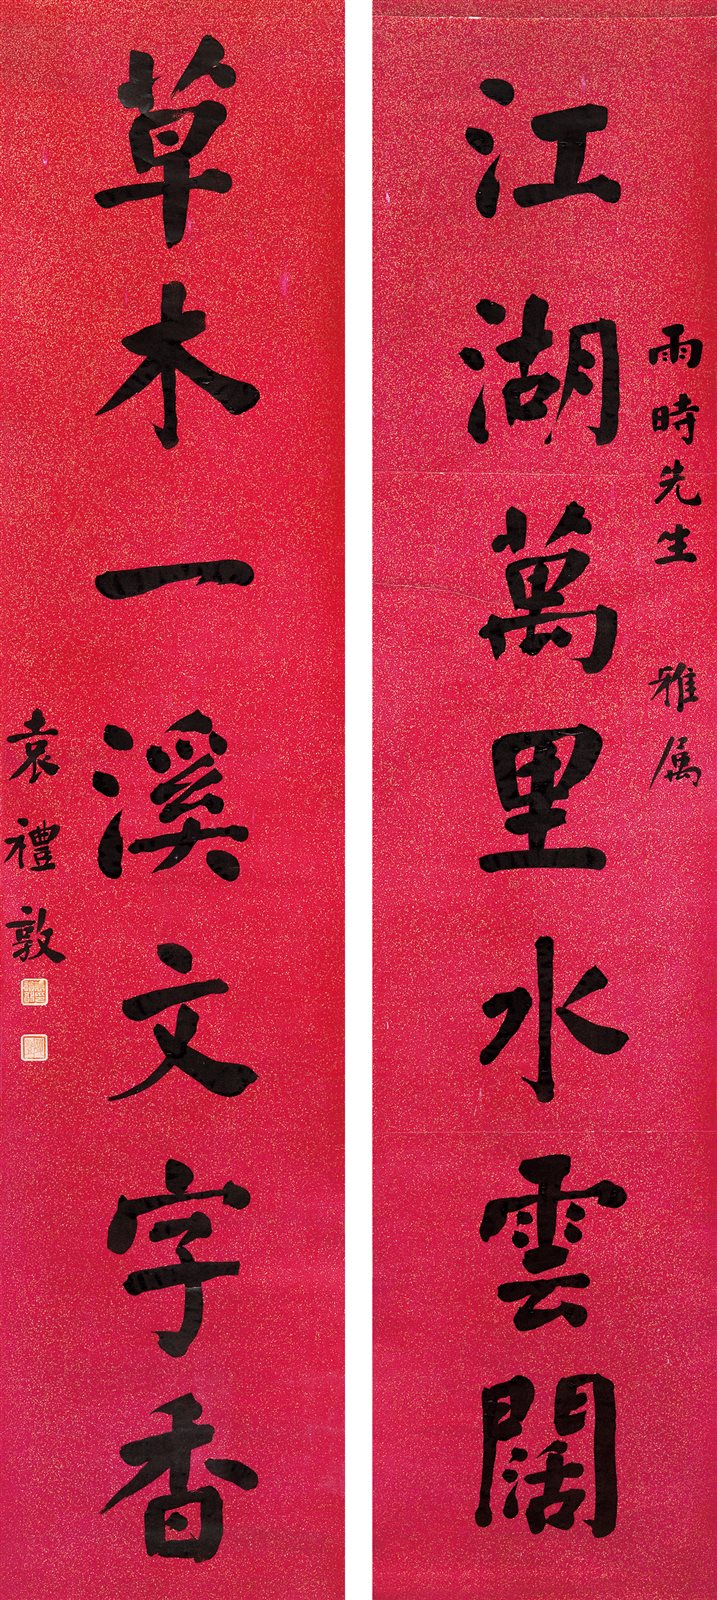 雨時先生 雅属
江湖萬里水雲闊
草木一溪文字香
袁禮敦